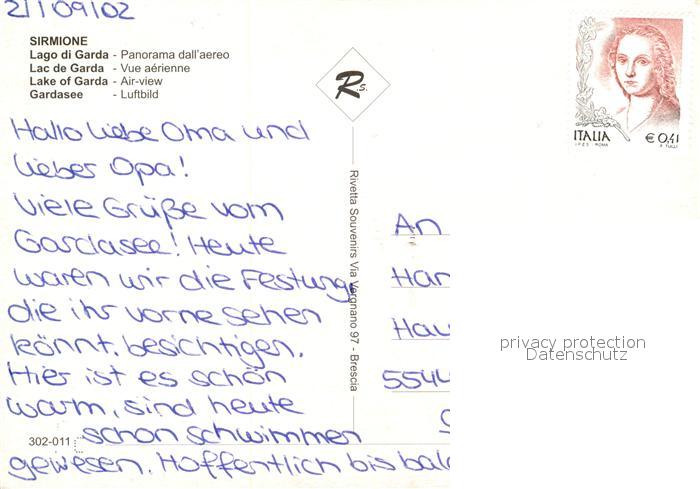 2/1/09/02
SIRMIONE
Lago di Garda - Panorama dall'aereo
Lac de Garda - Vue aérienne
Lake of Garda - Air-view
Gardasee - Luftbild
R.s.
ITALIA
€ 0,41
I.P.Z.S. - ROMA
R. TULLI
Hallo liebe Oma und
lieber Opa!
Viele Grüße vom
Gardasee! Heute
waren wir die Festung,
die ihr vorne sehen
könnt, besichtigen.
Hier ist es schön
warm, sind heute
schon schwimmen
gewesen. Hoffentlich bis bald
302-011
Rivetta Souvenirs Via Vergnano 97 - Brescia
An
Har
Hau
5544
privacy protection
Datenschutz